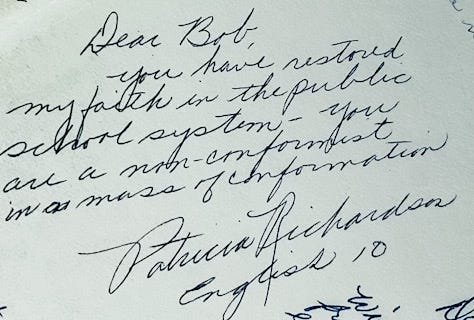 Dear Bob,
you have restored
my faith in the public
school system - you
are a non-conformist
in a mass of conformation
Patricia Richardson
English 10